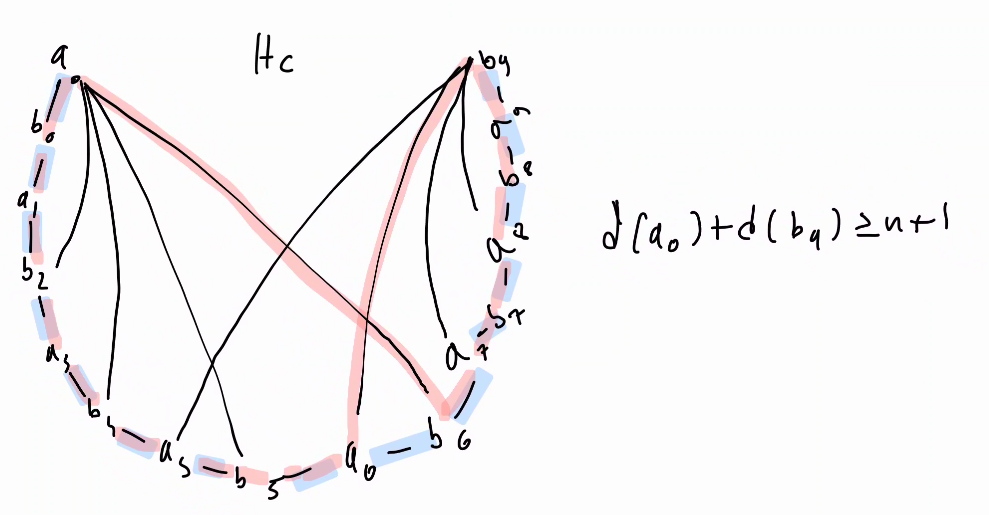 Hc
a₀
b₀
a₁
b₂
a₃
b₄
a₅
b₅
a₆
b₆
a₇
b₇
a₈
b₈
a₉
b₉
d(a₀)+d(b₉) ≥ n+1